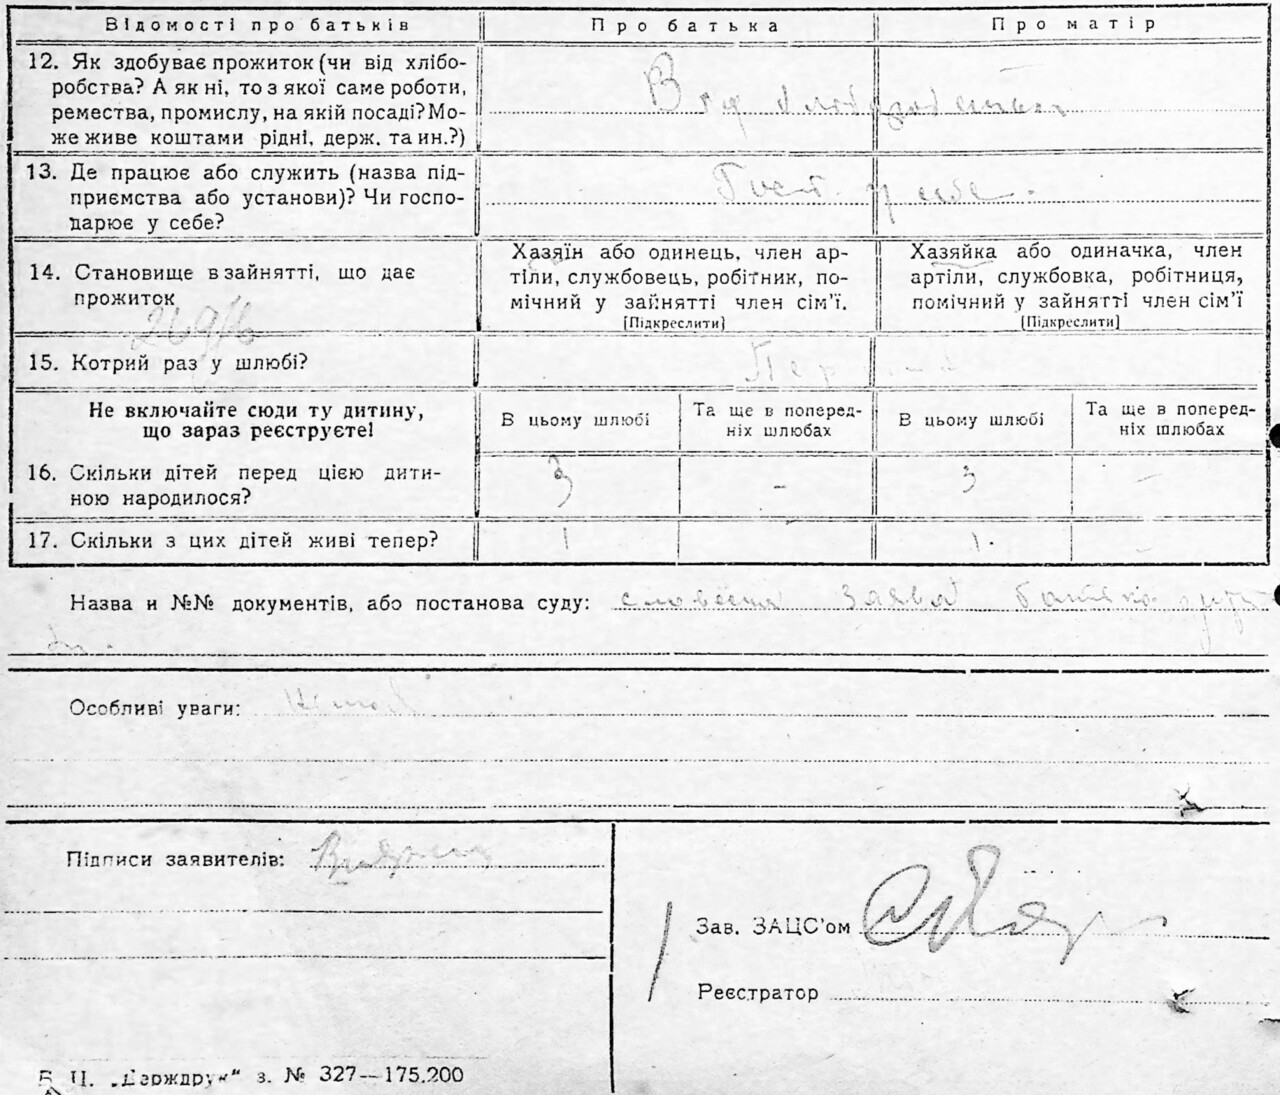 Відомості про батьків Про батька Про матір
12. Як здобуває прожиток (чи від хлібо-
робства? А як ні, то з якої саме роботи,
ремества, промислу, на якій посаді? Мо-
же живе коштами рідні, держ. та ин.?)
Від хліборобства
13. Де працює або служить (назва під-
приємства або установи)? Чи госпо-
дарює у себе?
Госп. у себе.
14. Становище в зайнятті, що дає
прожиток
Хазяїн або одинець, член ар-
тіли, службовець, робітник, по-
мічний у зайнятті член сім'ї.
[Підкреслити]
Хазяйка або одиначка, член
артіли, службовка, робітниця,
помічний у зайнятті член сім'ї
[Підкреслити]
15. Котрий раз у шлюбі?
Не включайте сюди ту дитину,
що зараз реєструєте!
В цьому шлюбі
Та ще в поперед-
ніх шлюбах
В цьому шлюбі
Та ще в поперед-
ніх шлюбах
16. Скільки дітей перед цією дити-
ною народилося?
3 - 3 -
17. Скільки з цих дітей живі тепер?
1 - 1. -
Назва и №№ документів, або постанова суду: словесна заява
Особливі уваги:
Підписи заявителів:
Зав. ЗАЦС'ом
Реєстратор
Б. Ц. „Держдрук“ з. № 327—175.200